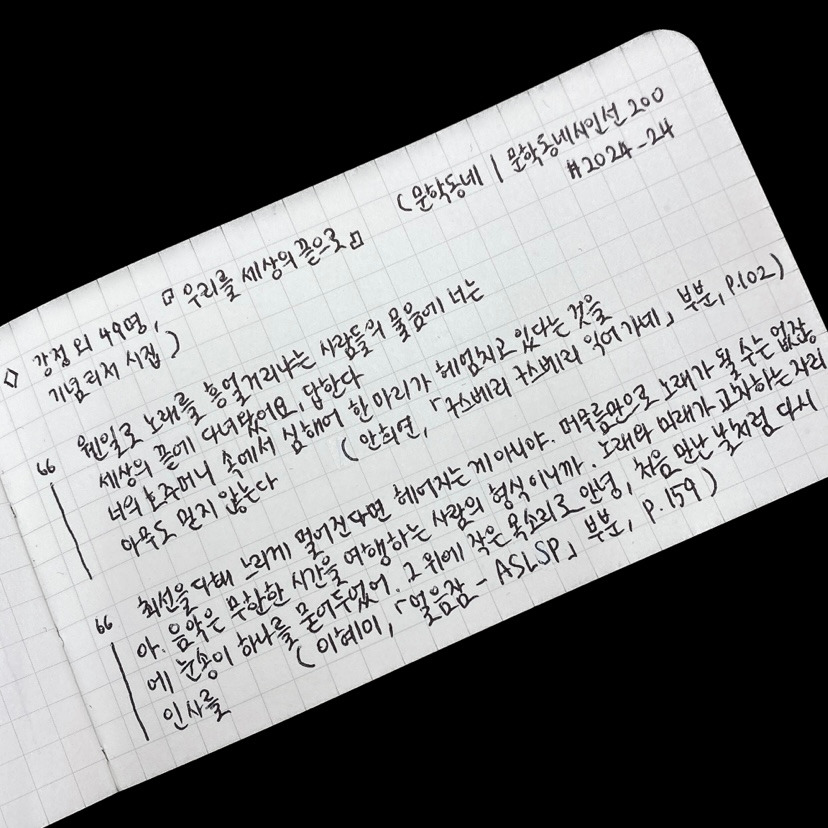 ◇ 강정 외 49명, 『우리를 세상의 끝으로』
(문학동네 | 문학동네시인선 200
기념티저 시집)
#2024-24
“ 웬일로 노래를 흥얼거리냐는 사람들의 물음에 너는
세상의 끝에 다녀왔어요, 답한다
너의 호주머니 속에서 심해어 한 마리가 헤엄치고 있다는 것을
아무도 믿지 않는다
(안희연, 「구스베리 구스베리 익어가네」 부분, p.102)
“ 최선을 다해 느리게 멀어진다면 헤어지는 게 아니야. 머무름만으로 노래가 될 수는 없잖
아. 음악은 무한한 시간을 여행하는 사람의 형식이니까. 노래와 미래가 교차하는 자리
에 눈송이 하나를 묻어두었어. 그 위에 작은 목소리로 안녕, 처음 만난 날처럼 다시
인사를
(이혜미, 「얼음잠-ASLSP」 부분, p.159)